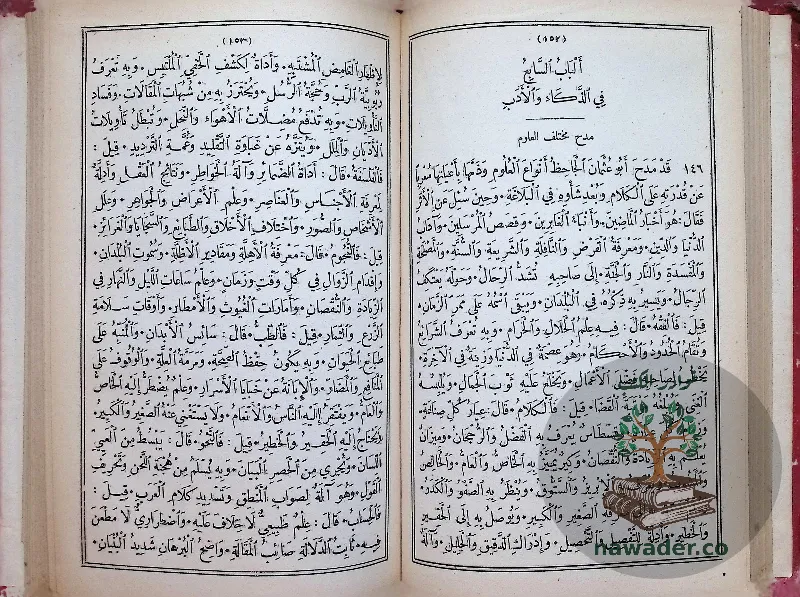 (١٥٢)
أَلْبَابُ السَّابِعُ
فِي الذَّكَاءِ وَالْأَدَبِ
مدح مختلف العلوم
١٤٦ قَدْ مَدَحَ أَبُو عُثْمَانَ الْجَاحِظُ أَنْوَاعَ الْعُلُومِ وَذَمَّهَا بِأَعْيَانِهَا مُعْرِبًا
عَنْ قُدْرَتِهِ عَلَى الْكَلَامِ وَبُعْدِ شَأْوِهِ فِي الْبَلَاغَةِ. وَحِينَ سُئِلَ عَنِ الْأَثَرِ
فَقَالَ: هُوَ أَخْبَارُ الْمَاضِينَ. وَأَنْبَاءُ الْغَابِرِينَ. وَقِصَصُ الْمُرْسَلِينَ. وَآدَابُ
الدُّنْيَا وَالدِّينِ. وَمَعْرِفَةُ الْفَرْضِ وَالنَّافِلَةِ وَالشَّرِيعَةِ وَالسُّنَّةِ. وَالْمَصْلَحَةِ
وَالْمَفْسَدَةِ وَالنَّارِ وَالْجَنَّةِ. إِلَى صَاحِبِهِ تُشَدُّ الرِّحَالُ. وَحَوْلَهُ يَعْتَكِفُ
الرِّجَالُ. وَيَسِيرُ بِهِ ذِكْرُهُ فِي الْبُلْدَانِ. وَيَبْقَى اسْمُهُ عَلَى مَمَرِّ الزَّمَانِ.
قِيلَ: فَالْفِقْهُ. قَالَ: فِيهِ عِلْمُ الْحَلَالِ وَالْحَرَامِ. وَبِهِ تُعْرَفُ الشَّرَائِعُ
وَتُقَامُ الْحُدُودُ وَالْأَحْكَامُ. وَهُوَ عِصْمَةٌ فِي الدُّنْيَا وَزِينَةٌ فِي الْآخِرَةِ.
الْأَعْمَالِ. وَيَخْلَعُ عَلَيْهِ ثَوْبَ الْجَمَالِ. وَيُلْبِسُهُ
الْغِنَى الْقَضَا. قِيلَ: فَالْكَلَامُ. قَالَ: عِيَارُ كُلِّ صِنَاعَةٍ.
يُعْرَفُ بِهِ الْفَضْلُ وَالرُّجْحَانُ. وَمِيزَانٌ
يُعْلَمُ بِهِ وَالنُّقْصَانُ. وَكِيرٌ يُمَيَّزُ بِهِ الْخَاصُّ وَالْعَامُّ. وَالْخَالِصُ
وَالسَّتُّوقُ. وَيُنْظَرُ بِهِ الصَّفْوُ وَالْكَدَرُ.
الصَّغِيرُ وَالْكَبِيرُ. وَيُوصَلُ بِهِ إِلَى الْحَقِيرِ
وَالْخَطِيرِ. وَالتَّحْصِيلِ. وَإِدْرَاكِ الدَّقِيقِ وَالْجَلِيلِ. وَآلَةٌ
nawader.co
(١٥٣)
لِإِظْهَارِ الْغَامِضِ الْمُشْتَبِهِ. وَأَدَاةٌ لِكَشْفِ الْخَفِيِّ الْمُلْتَبِسِ. وَبِهِ تُعْرَفُ
رُبُوبِيَّةُ الرَّبِّ وَحُجَّةُ الرُّسُلِ. وَيُحْتَرَزُ بِهِ مِنْ شُبُهَاتِ الْمَقَالَاتِ. وَفَسَادِ
التَّأْوِيلَاتِ. وَبِهِ تُدْفَعُ مُضِلَّاتُ الْأَهْوَاءِ وَالنِّحَلِ. وَتُبْطَلُ تَأْوِيلَاتُ
الْأَدْيَانِ وَالْمِلَلِ. وَيُنَزَّهُ عَنْ غَبَاوَةِ التَّقْلِيدِ وَغُمَّةِ التَّرْدِيدِ. قِيلَ:
فَالْفَلْسَفَةُ. قَالَ: أَدَاةُ الضَّمَائِرِ وَآلَةُ الْخَوَاطِرِ. وَنَتَائِجُ الْعَقْلِ. وَأَدِلَّةٌ
لِمَعْرِفَةِ الْأَجْنَاسِ. وَالْعَنَاصِرِ. وَعِلْمِ الْأَعْرَاضِ وَالْجَوَاهِرِ. وَعِلَلِ
الْأَشْخَاصِ وَالصُّوَرِ. وَاخْتِلَافِ الْأَخْلَاقِ وَالطَّبَائِعِ وَالسَّجَايَا وَالْغَرَائِزِ.
قِيلَ: فَالنُّجُومُ. قَالَ: مَعْرِفَةُ الْأَهِلَّةِ وَمَقَادِيرِ الْأَظِلَّةِ. وَسُمُوتِ الْبُلْدَانِ.
وَإِقْدَامِ الزَّوَالِ فِي كُلِّ وَقْتٍ وَزَمَانٍ. وَعِلْمُ سَاعَاتِ اللَّيْلِ وَالنَّهَارِ فِي
الزِّيَادَةِ وَالنُّقْصَانِ. وَأَمَارَاتِ الْغُيُوثِ وَالْأَمْطَارِ. وَأَوْقَاتِ سَلَامَةِ
الزَّرْعِ وَالثِّمَارِ. قِيلَ: فَالطِّبُّ. قَالَ: سَائِسُ الْأَبْدَانِ. وَالْمُنَبِّهُ عَلَى
طَبَائِعِ الْحَيَوَانِ. وَبِهِ يَكُونُ حِفْظُ الصِّحَّةِ. وَمَرَمَّةُ الْعِلَّةِ. وَالْوُقُوفُ عَلَى
الْمَنَافِعِ وَالْمَضَارِّ. وَالْإِبَانَةُ عَنْ خَبَايَا الْأَسْرَارِ. وَعِلْمٌ يُضْطَرُّ إِلَيْهِ الْخَاصُّ
وَالْعَامُّ. وَيَفْتَقِرُ إِلَيْهِ النَّاسُ وَالْأَنْعَامُ. وَلَا يَسْتَغْنِي عَنْهُ الصَّغِيرُ وَالْكَبِيرُ.
وَيَحْتَاجُ إِلَيْهِ الْحَقِيرُ وَالْخَطِيرُ. قِيلَ: فَالنَّحْوُ. قَالَ: يَبْسُطُ مِنَ الْعِيِّ
اللِّسَانَ. وَيُجْرِي مِنَ الْحَصَرِ الْبَيَانَ. وَبِهِ يُسْلَمُ مِنْ هُجْنَةِ اللَّحْنِ وَتَحْرِيفِ
الْقَوْلِ. وَهُوَ آلَةٌ لِصَوَابِ الْمَنْطِقِ وَتَسْدِيدِ كَلَامِ الْعَرَبِ. قِيلَ:
فَالْحِسَابُ. قَالَ: عِلْمٌ طَبِيعِيٌّ لَا خِلَافَ عَلَيْهِ. وَاضْطِرَارِيٌّ لَا مَطْعَنَ
فِيهِ. ثَابِتُ الدَّلَالَةِ صَائِبُ الْمَقَالَةِ. وَاضِحُ الْبُرْهَانِ شَدِيدُ الْبُنْيَانِ.